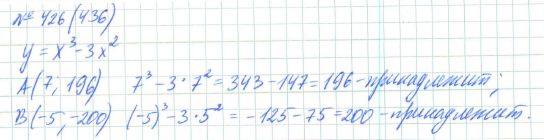 № 426 (436)
y = x³ - 3x²
A(7; 196) 7³ - 3 · 7² = 343 - 147 = 196 - принадлежит;
B(-5; -200) (-5)³ - 3 · 5² = -125 - 75 = 200 - принадлежит.